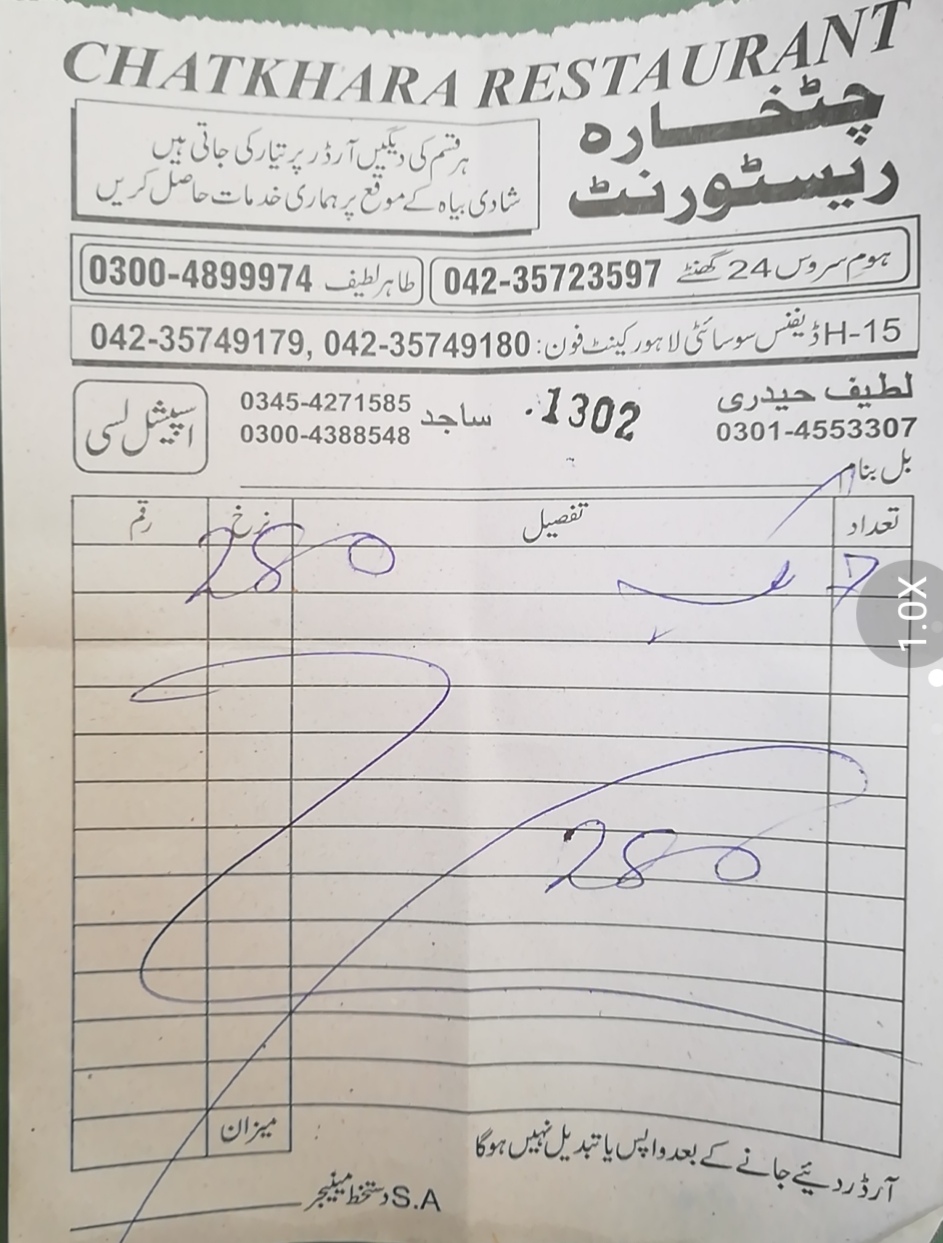 CHATKHARA RESTAURANT
چٹخارہ
ریسٹورنٹ
ہر قسم کی دیگیں آرڈر پر تیار کی جاتی ہیں
شادی بیاہ کے موقع پر ہماری خدمات حاصل کریں
ہوم سروس 24 گھنٹے 042-35723597
طاہر لطیف 0300-4899974
H-15 ڈیفنس سوسائٹی لاہور کینٹ فون: 042-35749179, 042-35749180
لطیف حیدری
0301-4553307
1302
ساجد 0345-4271585
0300-4388548
اسپیشل لسی
بل بنام
تعداد تفصیل نرخ رقم
7 280
280
میزان
آرڈر دیئے جانے کے بعد واپس یا تبدیل نہیں ہوگا
S.A دستخط مینیجر
1.0X